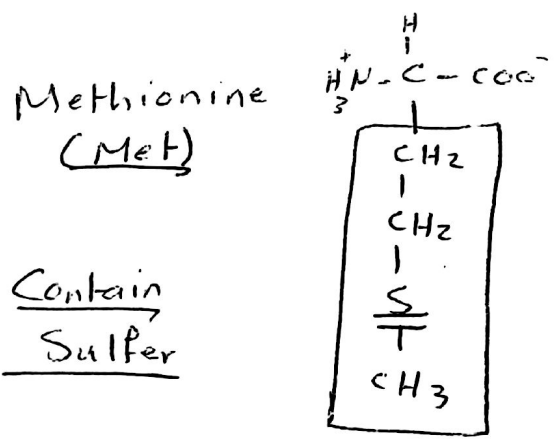 Methionine
(Met)
Contain
Sulfer
H
H3N+ - C - COO-
CH2
CH2
S
CH3